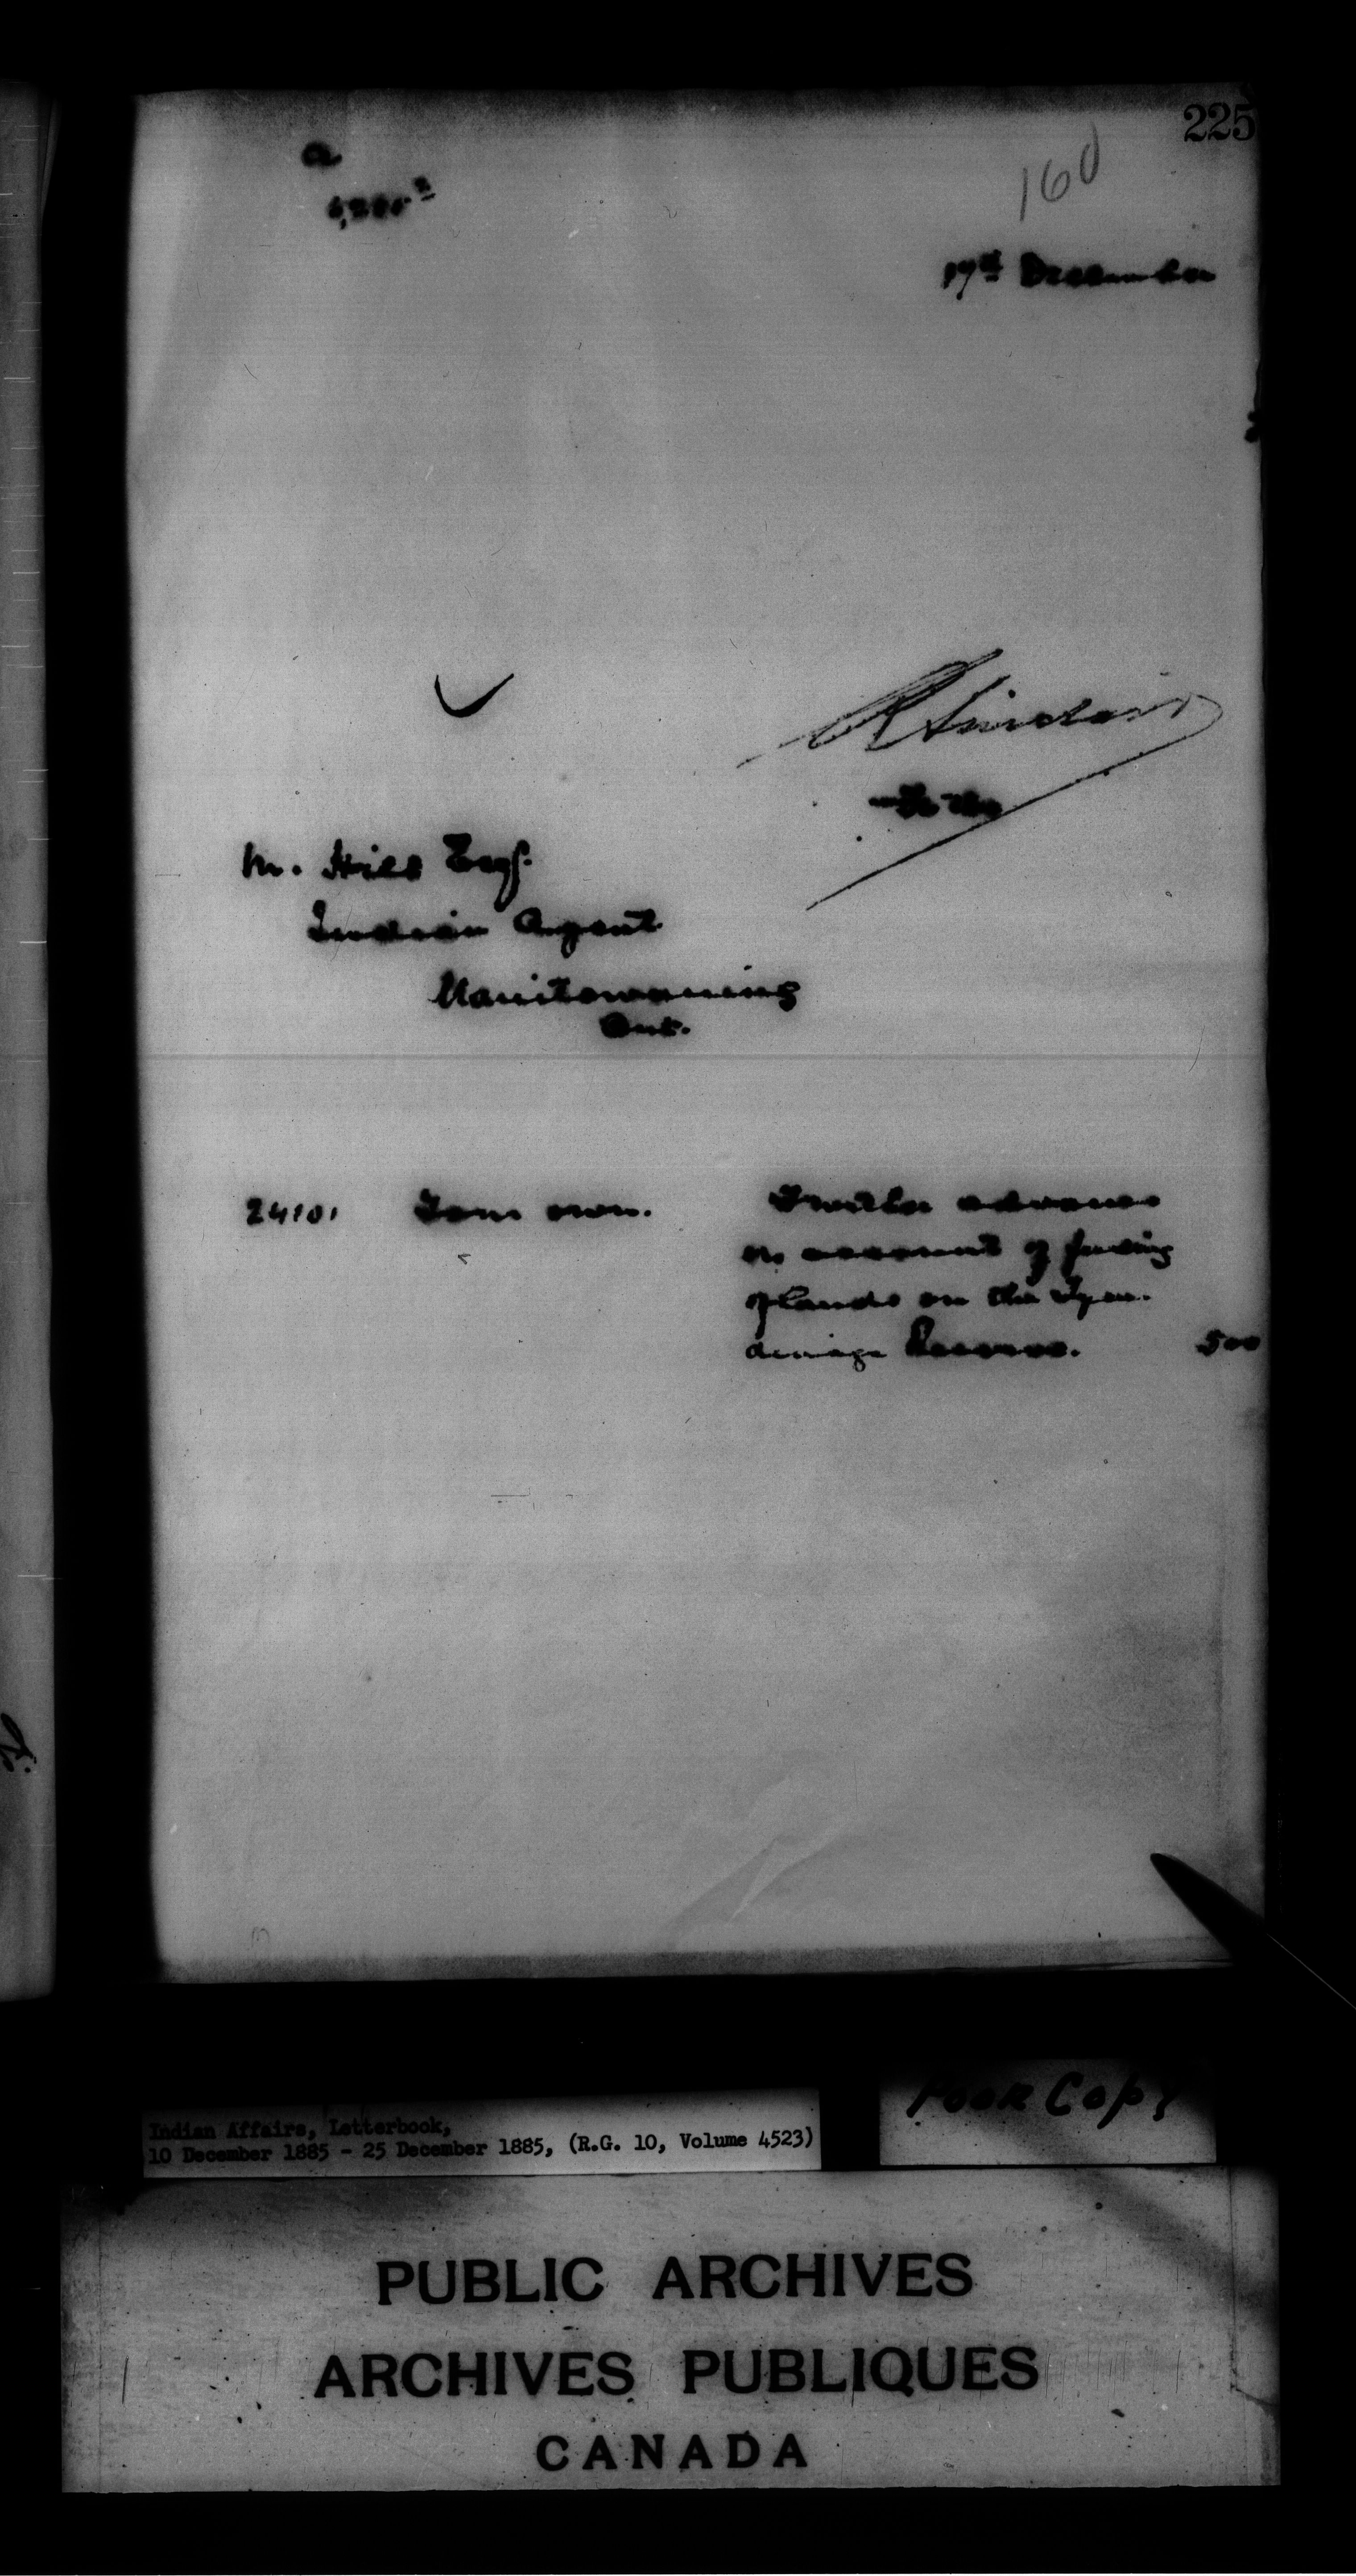 225
160
a
17th December
R Sinclair
M. Hill Esqr.
Indian Agent
Manitowaning
Ont.
24101 Your own. Further advance
on account of
of lands on the Tyen-
denaga Reserve. 500
Poor Copy
Indian Affairs, Letterbook,
10 December 1885 - 25 December 1885, (R.G. 10, Volume 4523)
PUBLIC ARCHIVES
ARCHIVES PUBLIQUES
CANADA